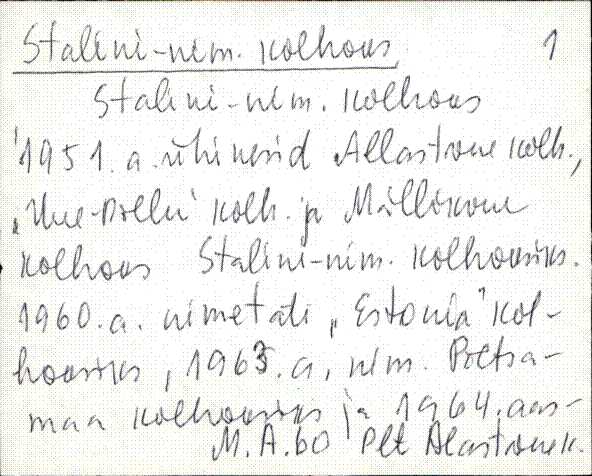 Stalini-nim. kolhoos 1
Stalini-nim. kolhoos
1951. a. ühinesid Allastvere kolh.,
"Uue-Põllu" kolh. ja Mällikvere
kolhoos Stalini-nim. kolhoosiks.
1960. a. nimetati "Estonia" kol-
hoosiks, 1963. a. nim. Põltsa-
maa kolhoosiks ja 1964. aas-
M.A. 60 Plt Alastvere k.